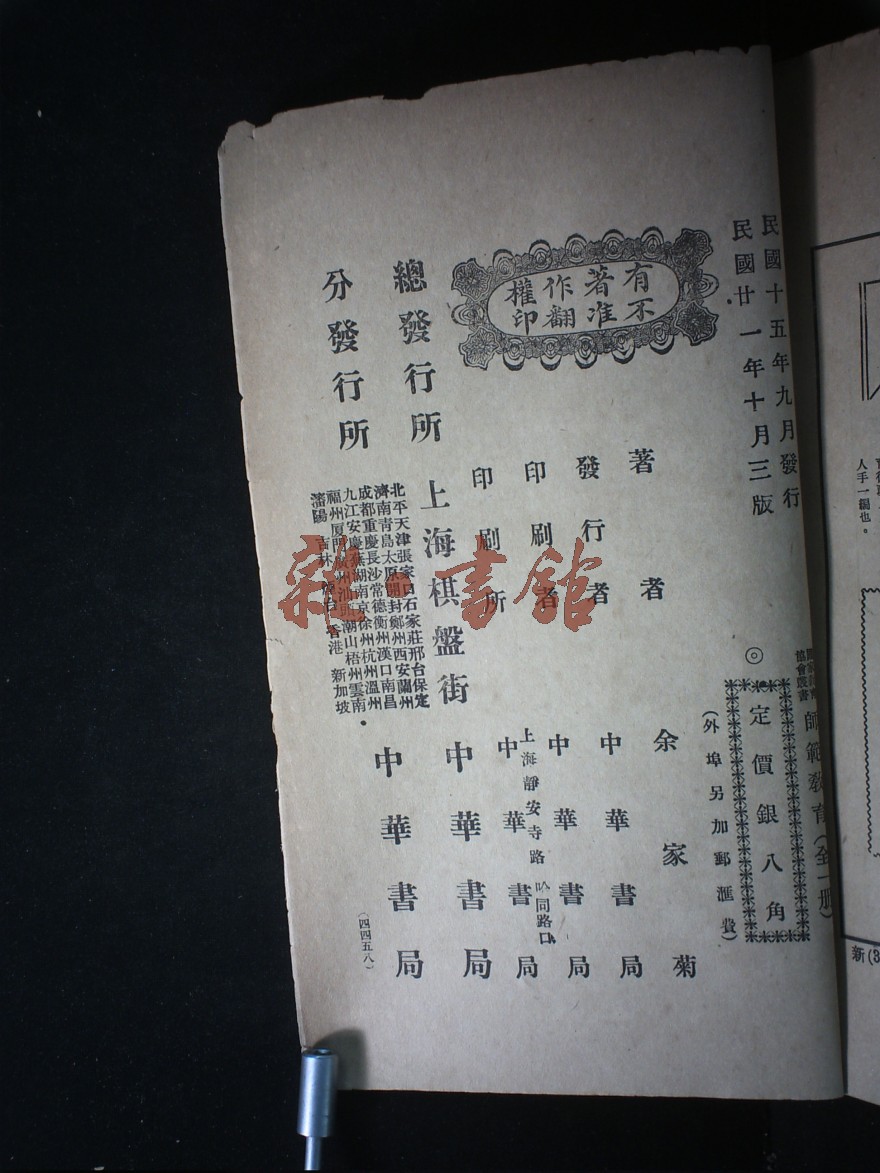 民國十五年九月發行
民國廿一年十月三版
協會叢書
師範教育（全一册）
◎
定價銀八角
（外埠另加郵滙費）
有不
著准
作翻
權印
著者 余家菊
發行者 中華書局
印刷者 中華書局
上海靜安寺路 哈同路口
印刷所 中華書局
總發行所 上海棋盤街 中華書局
分發行所 中華書局
北平天津張家口石家莊邢台保定
濟南青島太原開封鄭州西安蘭州
成都重慶長沙常德衡州漢口南昌
九江安慶蕪湖南京徐州杭州溫州
福州厦門廣州汕頭潮山梧州雲南
瀋陽 吉林 香港 新加坡
（四四五八）
雜書館
人手一編也。
新(3